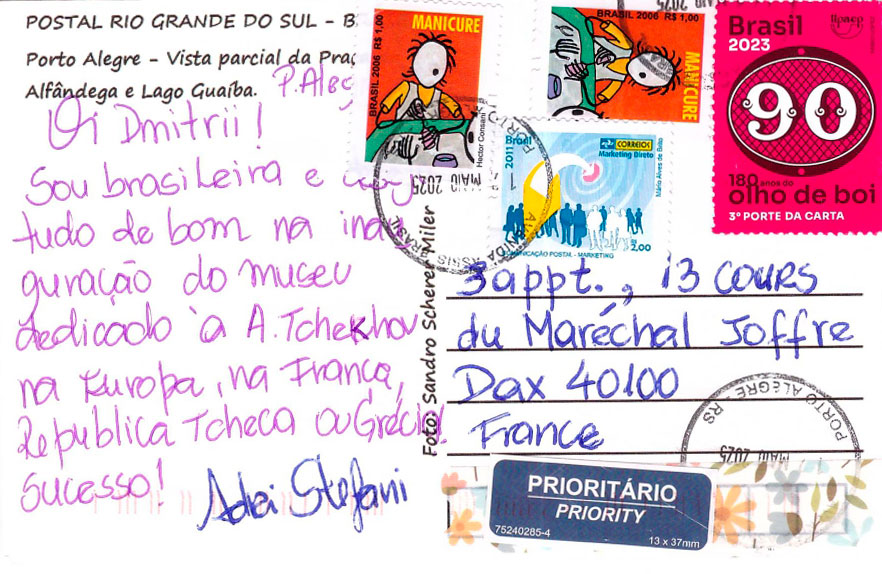 POSTAL RIO GRANDE DO SUL - B
Porto Alegre - Vista parcial da Praç
Alfândega e Lago Guaíba.
Oi Dmitrii!
Sou brasileira e
tudo de bom na inau
guração do museu
dedicado à A. Tchekhov
na Europa, na França,
República Tcheca ou Grécia!
Sucesso!
Foto: Sandro Scherer Miler
MANICURE
BRASIL 2006 R$ 1,00
Hector Consani
MANICURE
BRASIL 2006 R$ 1,00
Brasil
2011
CORREIOS
Marketing Direto
Mário Alves de Brito
R$ 2,00
COMUNICAÇÃO POSTAL - MARKETING
Brasil
2023
Upaep
90
180 anos do
olho de boi
3º PORTE DA CARTA
MAIO 2025
AVENIDA ASSIS BRASIL
3 appt., 13 cours
du Maréchal Joffre
Dax 40100
France
PORTO ALEGRE RS
MAIO 2025
PRIORITÁRIO
PRIORITY
75240285-4
13 x 37mm